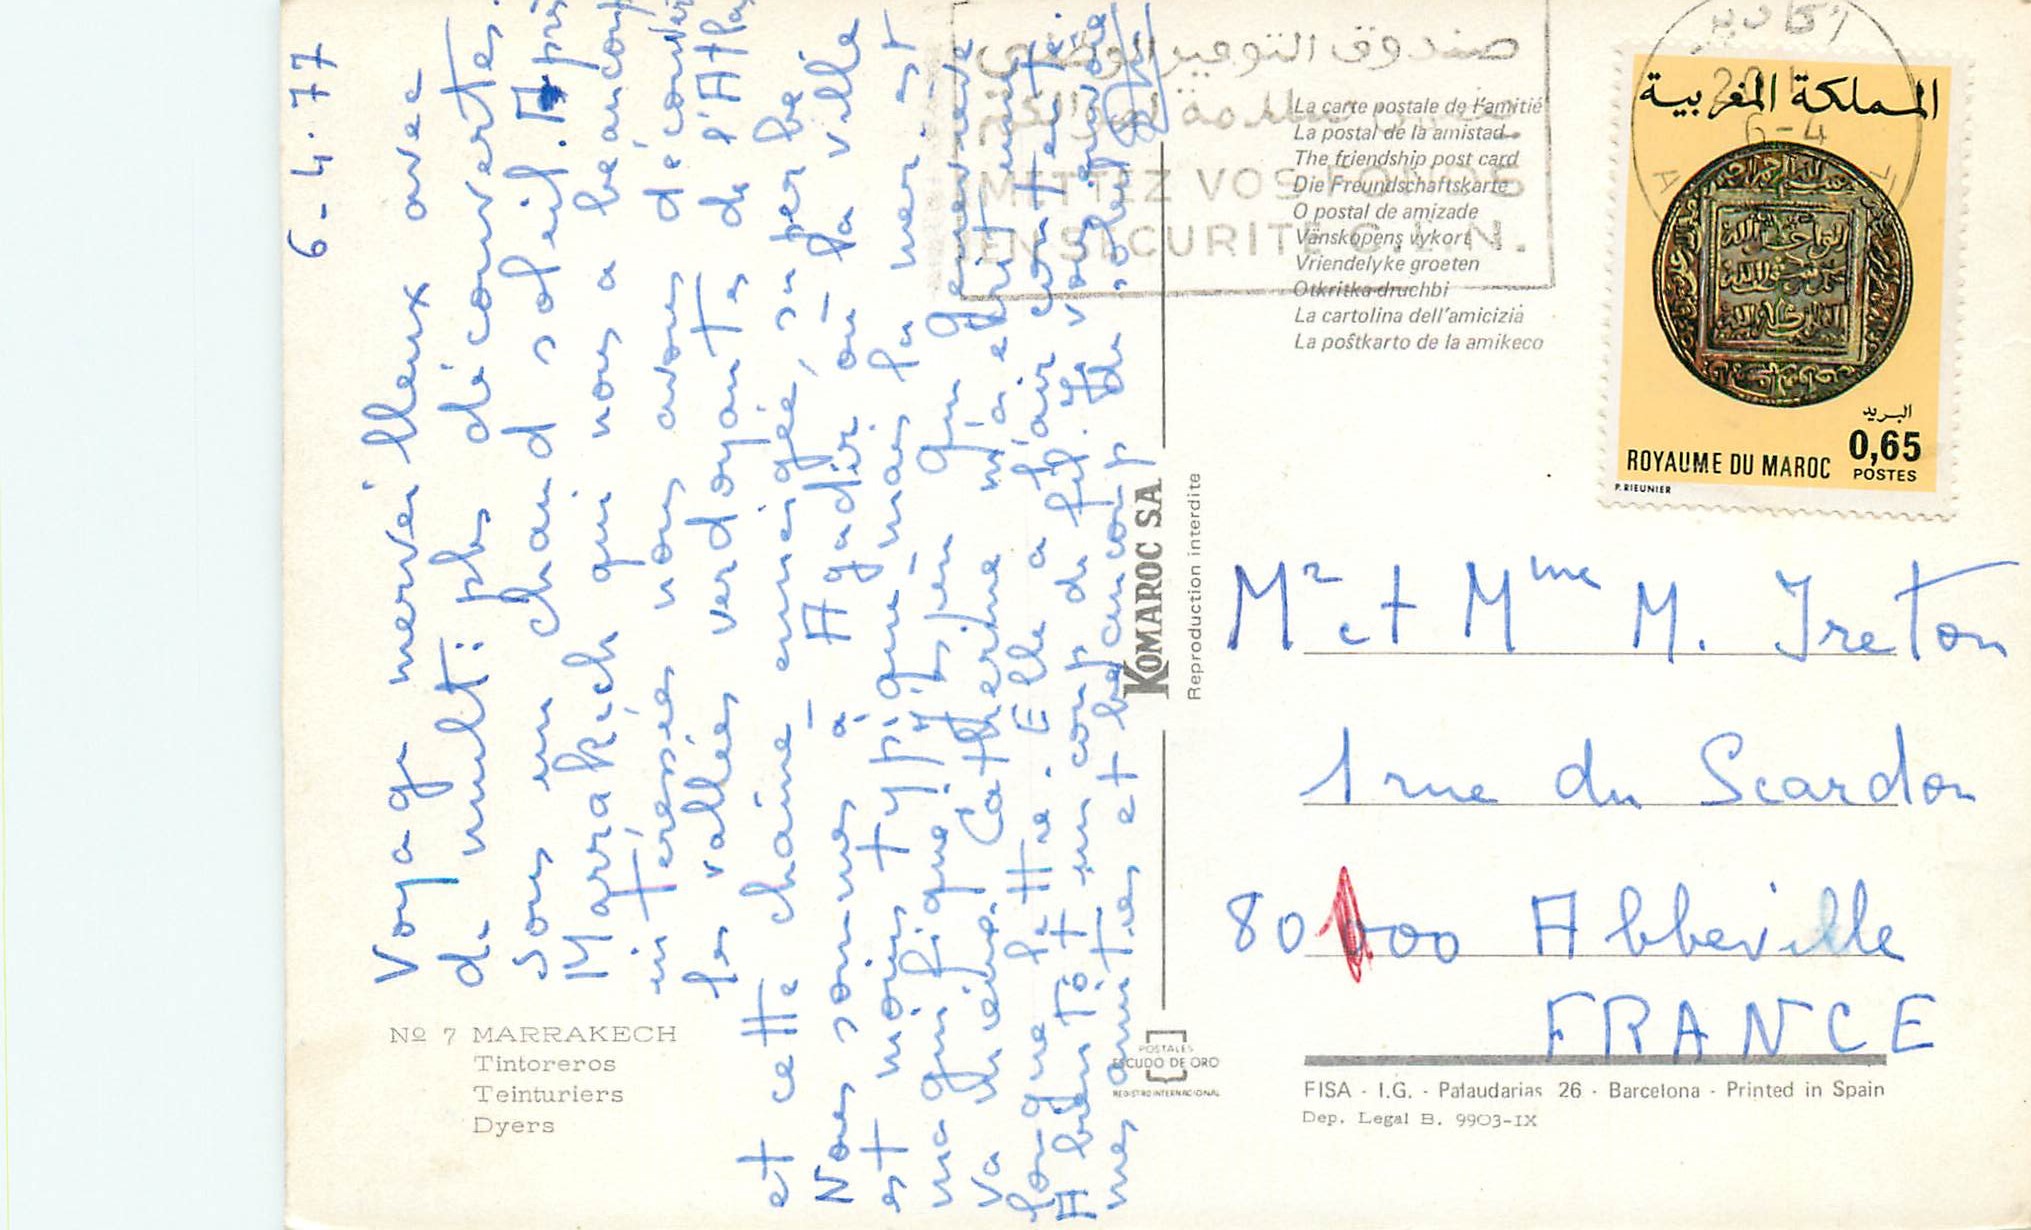 6-4.77
Voyage merveilleux avec
de multiples découvertes
sous un chaud soleil. Après
Marrakech qui nous a beaucoup
intéressées nous avons découvert
les vallées verdoyantes de l'Atlas
et cette chaîne enneigée, superbe
Nous sommes à Agadir où la ville
est moins typique mais la mer est
magnifique. J'espère que Geneviève
va mieux. Catherine m'a écrit une
longue lettre. Elle a l'air contente
A bientôt un coup de fil. Je vous envoie
mes amitiés et beaucoup de soleil
Nº 7 MARRAKECH
Tintoreros
Teinturiers
Dyers
KOMAROC S.A.
Reproduction interdite
POSTALES
ESCUDO DE ORO
REGISTRO INTERNACIONAL
صندوق التوفير الوطني
METTEZ VOS FONDS
EN SECURITE C.E.N.
La carte postale de l'amitié
La postal de la amistad
The friendship post card
Die Freundschaftskarte
O postal de amizade
Vänskopens vykort
Vriendelyke groeten
Otkritka druchbi
La cartolina dell'amicizia
La poŝtkarto de la amikeco
6-4
المملكة المغربية
البريد
0,65
ROYAUME DU MAROC
POSTES
P. RIEUNIER
Mr et Mme M. Ireton
1 rue du Scardon
80000 Abbeville
FRANCE
FISA - I.G. - Palaudarias 26 - Barcelona - Printed in Spain
Dep. Legal B. 9903-IX